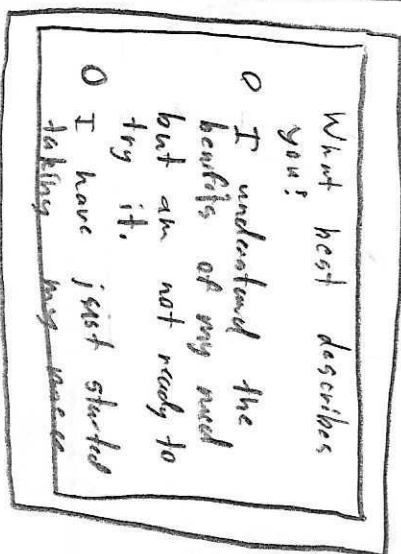 What best describes
you?
O I understand the
benefits of my med
but am not ready to
try it.
O I have just started
taking my